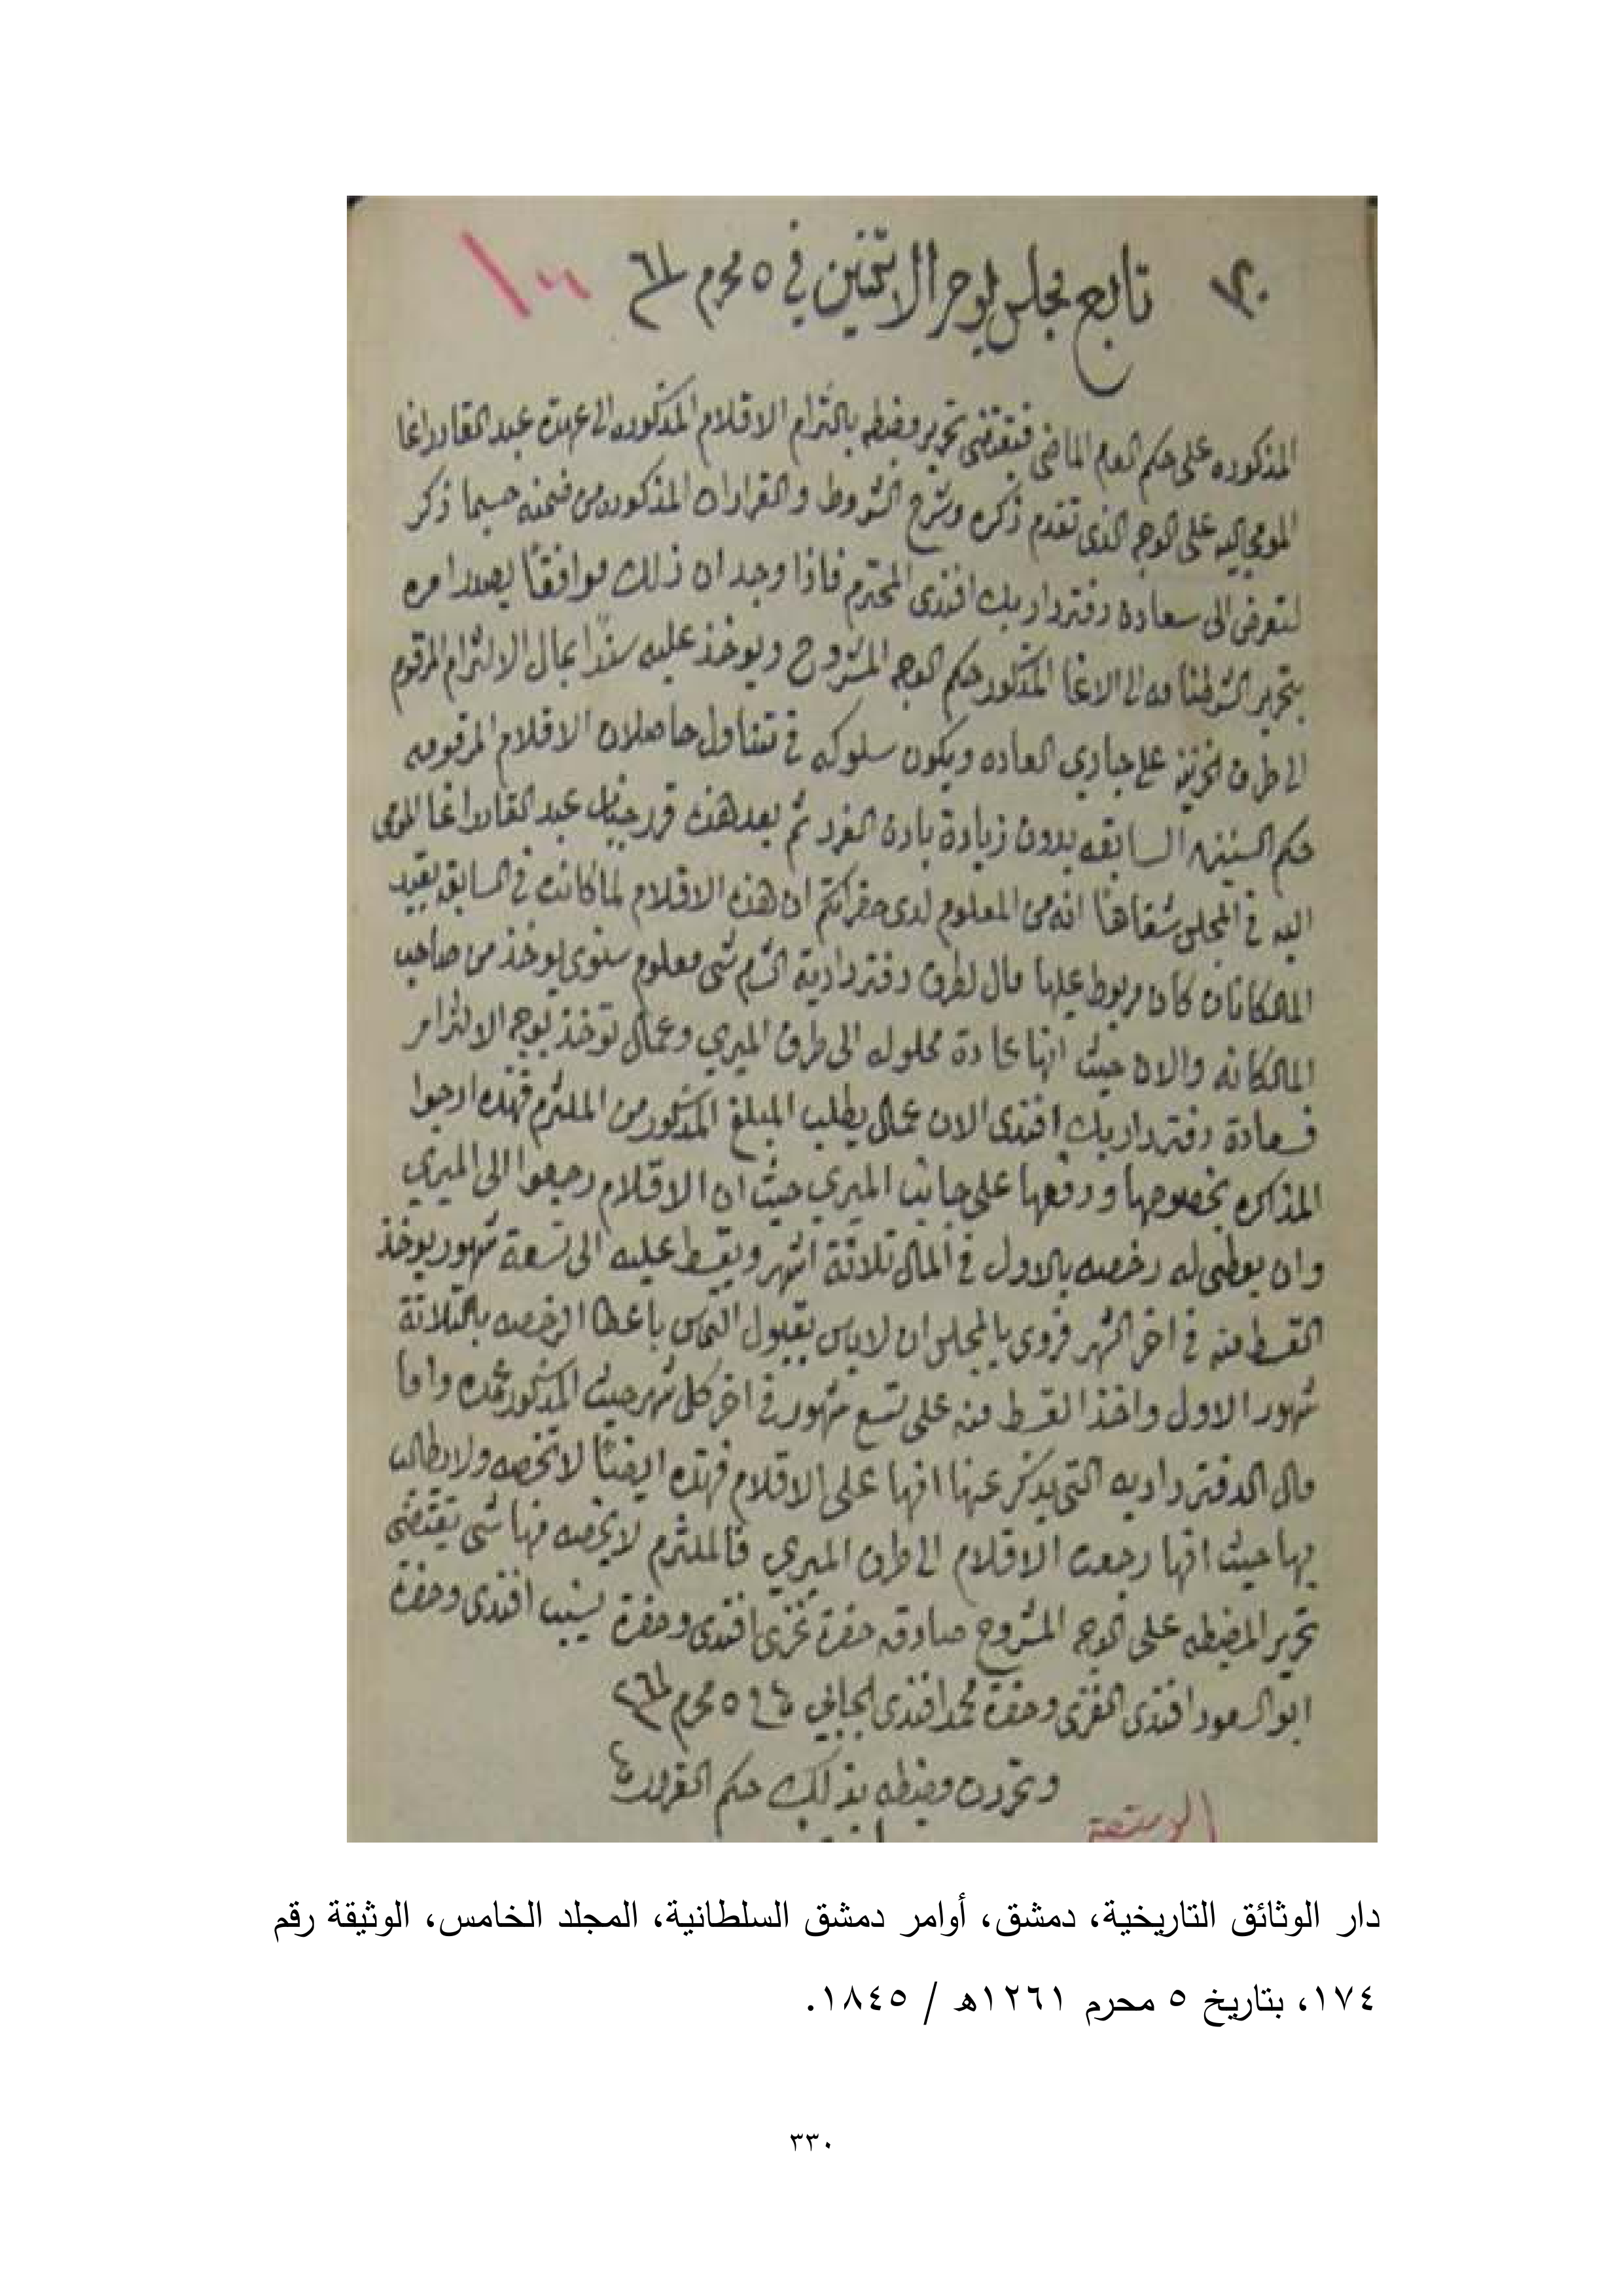 تابع مجلس يوم الاثنين في ٥ محرم ٦١
المذكوره على حكم العام الماضي فيقتضى تحرير مضبطه بالتزام الاقلام المذكوره الى عهدة عبد القادر اغا
المومى اليه على الوجه الذى تقدم ذكره وشرح الشروط والقرارات المذكوره من ضمنه حسبما ذكر
لتعرض الى سعادة دفتردار بك افندى المحترم فاذا وجد ان ذلك موافقًا يصدر امره
بتحرير الشرطنامه الى الاغا المذكور حكم الوجه المشروح ويوخذ عليه سندًا بمال الالتزام المرقوم
الى طرف الخزينه على جاري العاده ويكون سلوكه في تناول حاصلات الاقلام المرقومه
حكم السنين السابقه بدون زيادة بادن الفرد ثم بعد هذه قرر جناب عبد القادر اغا المومى
اليه في المجلس شفاهًا انه من المعلوم لدى حضراتكم ان هذه الاقلام لما كانت في السابق بقيد
المالكانات كان مربوط عليها مال لطرف دفتردارية الشام شى معلوم سنوى يوخذ من صاحب
المالكانه والان حيث انها عادة محلوله الى طرف الميري وعمال توخذ بوجه الالتزام
فسعادة دفتردار بك افندى الان عمال يطلب المبلغ المذكور من الملتزم فهذه ارجوا
المذاكره بخصوصها ورفعها على جانب الميري حيث ان الاقلام رجعوا الى الميري
وان يعطى له رخصه بالاول في المال ثلاثة اشهر ويقسط عليه الى تسعة شهور يوخذ
القسط منه في اخر الشهر فروى بالمجلس ان لاباس بقبول التماس باعطا الرخصه بالثلاثة
شهور الاول واخذ القسط منه على تسع شهور في اخر كل شهر حيث المذكور عمده واما
مال الدفترداريه التى يذكر عنها انها على الاقلام فهذه ايضًا لا تخصه ولا يطالب
بها حيث انها رجعت الاقلام الى طرف الميري فالملتزم لا يخصه منها شى يقتضى
تحرير المضبطه على الوجه المشروح صادقه حضرة غزى افندى وحضرة نسيب افندى وحضرة
ابو السعود افندى الغزى وحضرة محمد افندى الجابي في ٥ محرم ٢٦١
وتحررت مضبطه بذلك حكم القرار
دار الوثائق التاريخية، دمشق، أوامر دمشق السلطانية، المجلد الخامس، الوثيقة رقم
١٧٤، بتاريخ ٥ محرم ١٢٦١هـ / ١٨٤٥.
٣٣٠